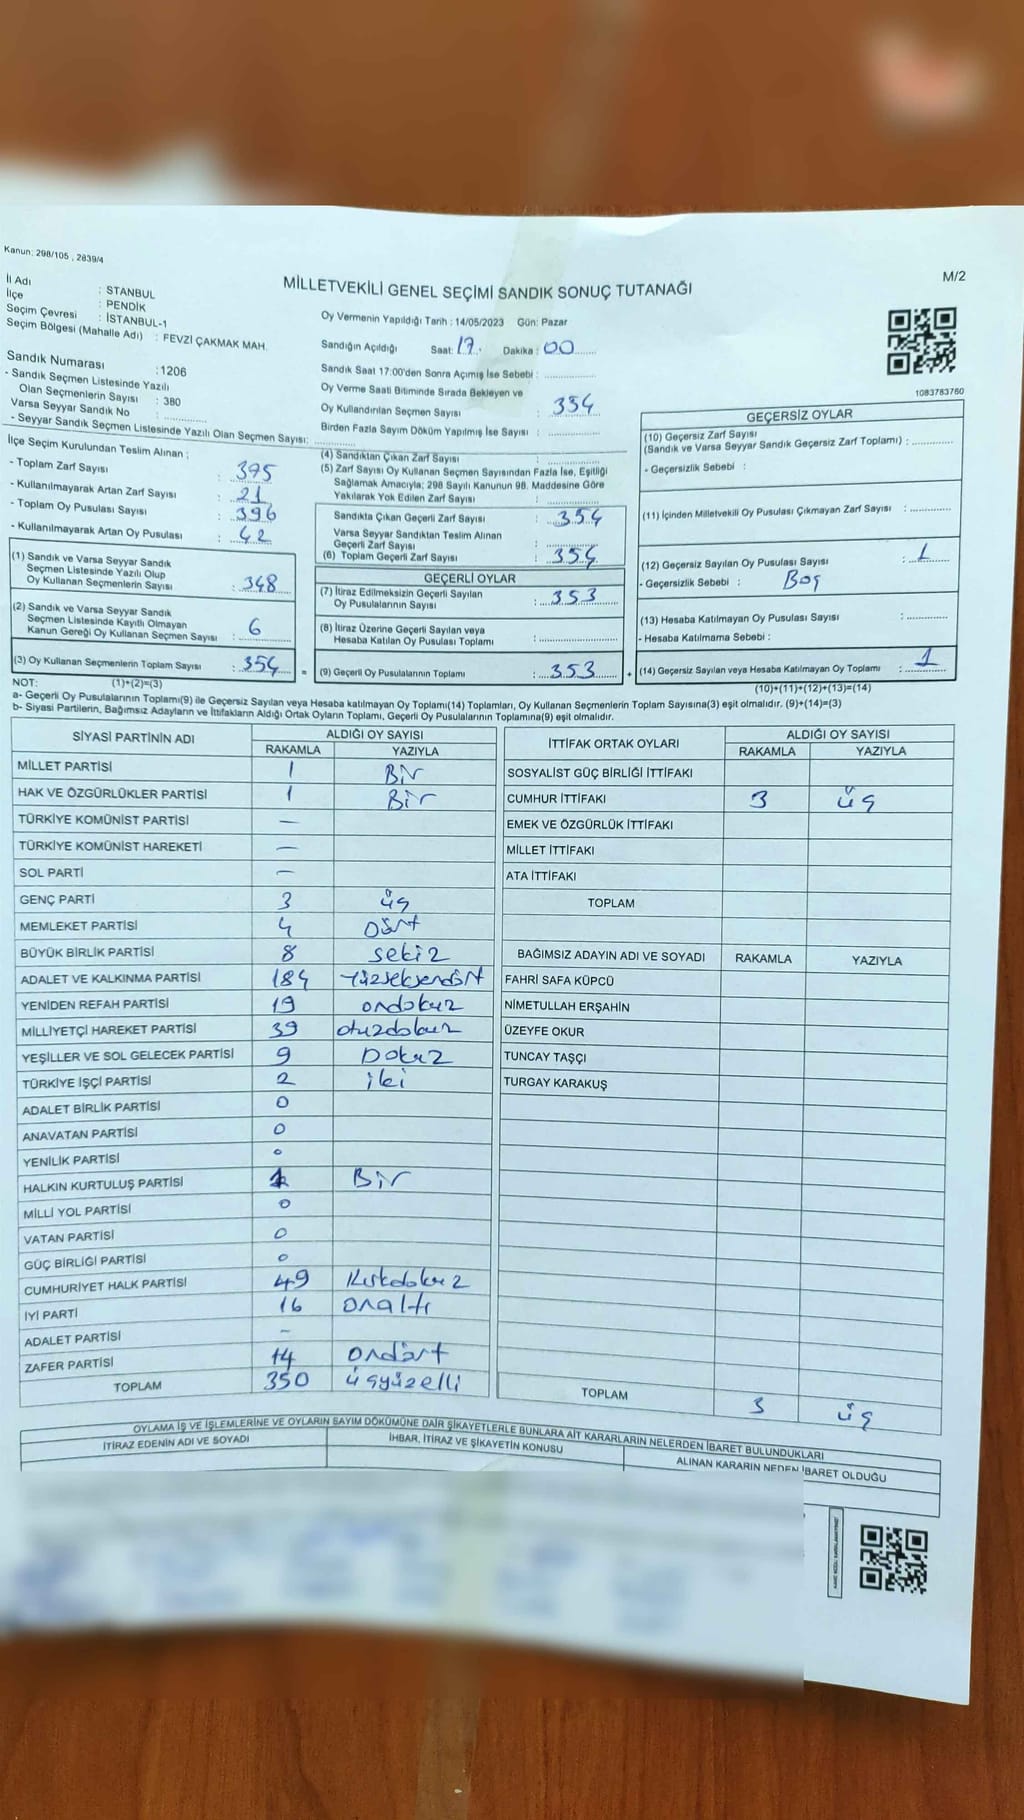 Kanun: 298/105 , 2839/4
M/2
MİLLETVEKİLİ GENEL SEÇİMİ SANDIK SONUÇ TUTANAĞI
İl Adı : STANBUL
İlçe : PENDİK
Seçim Çevresi : İSTANBUL-1
Seçim Bölgesi (Mahalle Adı) : FEVZİ ÇAKMAK MAH.
Sandık Numarası :1206
- Sandık Seçmen Listesinde Yazılı
Olan Seçmenlerin Sayısı : 380
Varsa Seyyar Sandık No : ............
- Seyyar Sandık Seçmen Listesinde Yazılı Olan Seçmen Sayısı: ............
Oy Vermenin Yapıldığı Tarih : 14/05/2023 Gün: Pazar
Sandığın Açıldığı Saat: 17 Dakika : 00
Sandık Saat 17:00'den Sonra Açımış İse Sebebi : ............
Oy Verme Saati Bitiminde Sırada Bekleyen ve
Oy Kullandırılan Seçmen Sayısı : 354
Birden Fazla Sayım Döküm Yapılmış İse Sayısı : ............
1083783760
İlçe Seçim Kurulundan Teslim Alınan ;
- Toplam Zarf Sayısı : 395
- Kullanılmayarak Artan Zarf Sayısı : 21
- Toplam Oy Pusulası Sayısı : 396
- Kullanılmayarak Artan Oy Pusulası : 42
(1) Sandık ve Varsa Seyyar Sandık
Seçmen Listesinde Yazılı Olup
Oy Kullanan Seçmenlerin Sayısı : 348
(2) Sandık ve Varsa Seyyar Sandık
Seçmen Listesinde Kayıtlı Olmayan
Kanun Gereği Oy Kullanan Seçmen Sayısı : 6
(3) Oy Kullanan Seçmenlerin Toplam Sayısı : 354 =
(4) Sandıktan Çıkan Zarf Sayısı : ............
(5) Zarf Sayısı Oy Kullanan Seçmen Sayısından Fazla İse, Eşitliği
Sağlamak Amacıyla; 298 Sayılı Kanunun 98. Maddesine Göre
Yakılarak Yok Edilen Zarf Sayısı : ............
Sandıkta Çıkan Geçerli Zarf Sayısı : 354
Varsa Seyyar Sandıktan Teslim Alınan
Geçerli Zarf Sayısı : ............
(6) Toplam Geçerli Zarf Sayısı : 354
GEÇERLİ OYLAR
(7) İtiraz Edilmeksizin Geçerli Sayılan
Oy Pusulalarının Sayısı : 353
(8) İtiraz Üzerine Geçerli Sayılan veya
Hesaba Katılan Oy Pusulası Toplamı : ............
(9) Geçerli Oy Pusulalarının Toplamı : 353 +
GEÇERSİZ OYLAR
(10) Geçersiz Zarf Sayısı
(Sandık ve Varsa Seyyar Sandık Geçersiz Zarf Toplamı) : ............
- Geçersizlik Sebebi :
(11) İçinden Milletvekili Oy Pusulası Çıkmayan Zarf Sayısı : ............
(12) Geçersiz Sayılan Oy Pusulası Sayısı : 1
- Geçersizlik Sebebi : Boş
(13) Hesaba Katılmayan Oy Pusulası Sayısı : ............
- Hesaba Katılmama Sebebi :
(14) Geçersiz Sayılan veya Hesaba Katılmayan Oy Toplamı : 1
NOT: (1)+(2)=(3)
(10)+(11)+(12)+(13)=(14)
a- Geçerli Oy Pusulalarının Toplamı(9) ile Geçersiz Sayılan veya Hesaba katılmayan Oy Toplamı(14) Toplamları, Oy Kullanan Seçmenlerin Toplam Sayısına(3) eşit olmalıdır. (9)+(14)=(3)
b- Siyasi Partilerin, Bağımsız Adayların ve İttifakların Aldığı Ortak Oyların Toplamı, Geçerli Oy Pusulalarının Toplamına(9) eşit olmalıdır.
SİYASİ PARTİNİN ADI ALDIĞI OY SAYISI
RAKAMLA YAZIYLA
MİLLET PARTİSİ 1 Bir
HAK VE ÖZGÜRLÜKLER PARTİSİ 1 Bir
TÜRKİYE KOMÜNİST PARTİSİ —
TÜRKİYE KOMÜNİST HAREKETİ —
SOL PARTİ —
GENÇ PARTİ 3 üç
MEMLEKET PARTİSİ 4 Dört
BÜYÜK BİRLİK PARTİSİ 8 sekiz
ADALET VE KALKINMA PARTİSİ 184 Yüzseksendört
YENİDEN REFAH PARTİSİ 19 ondokuz
MİLLİYETÇİ HAREKET PARTİSİ 39 otuzdokuz
YEŞİLLER VE SOL GELECEK PARTİSİ 9 Dokuz
TÜRKİYE İŞÇİ PARTİSİ 2 iki
ADALET BİRLİK PARTİSİ 0
ANAVATAN PARTİSİ 0
YENİLİK PARTİSİ 0
HALKIN KURTULUŞ PARTİSİ 1 Bir
MİLLİ YOL PARTİSİ 0
VATAN PARTİSİ 0
GÜÇ BİRLİĞİ PARTİSİ 0
CUMHURİYET HALK PARTİSİ 49 Kırkdokuz
İYİ PARTİ 16 onaltı
ADALET PARTİSİ —
ZAFER PARTİSİ 14 ondört
TOPLAM 350 üçyüzelli
İTTİFAK ORTAK OYLARI ALDIĞI OY SAYISI
RAKAMLA YAZIYLA
SOSYALİST GÜÇ BİRLİĞİ İTTİFAKI
CUMHUR İTTİFAKI 3 üç
EMEK VE ÖZGÜRLÜK İTTİFAKI
MİLLET İTTİFAKI
ATA İTTİFAKI
TOPLAM
BAĞIMSIZ ADAYIN ADI VE SOYADI RAKAMLA YAZIYLA
FAHRİ SAFA KÜPCÜ
NİMETULLAH ERŞAHİN
ÜZEYFE OKUR
TUNCAY TAŞÇI
TURGAY KARAKUŞ
TOPLAM 3 üç
OYLAMA İŞ VE İŞLEMLERİNE VE OYLARIN SAYIM DÖKÜMÜNE DAİR ŞİKAYETLERLE BUNLARA AİT KARARLARIN NELERDEN İBARET BULUNDUKLARI
İTİRAZ EDENİN ADI VE SOYADI İHBAR, İTİRAZ VE ŞİKAYETİN KONUSU ALINAN KARARIN NEDEN İBARET OLDUĞU